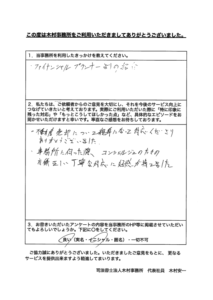 この度は木村事務所をご利用いただきましてありがとうございました。
1．当事務所を利用したきっかけを教えてください。
ファイナンシャルプランナーよりの
2．私たちは、ご依頼者からのご意見を大切にし、それを今後のサービス向上に
つなげていきたいと考えております。実際にご利用いただいた中で「特に印象に
残った対応」や「もっとこうしてほしかった点」など、具体的なエピソードをお
聞かせいただけますと幸いです。率直なご感想をお待ちしております。
・不動産売却について
ありがとうございました
・事務所に伺った際、コンシェルジュの方の
礼儀正しい丁寧な対応に好感が持てました。
3．お書きいただいたアンケートの内容を当事務所のHP等に掲載させていただい
てもよろしいでしょうか。下記に○をしてください。
良い（実名・イニシャル・匿名）・一切不可
ご協力誠にありがとうございました。いただきましたご意見をもとに、更なる
サービスを提供出来ますよう精進してまいります。
司法書士法人木村事務所　代表社員　木村安一